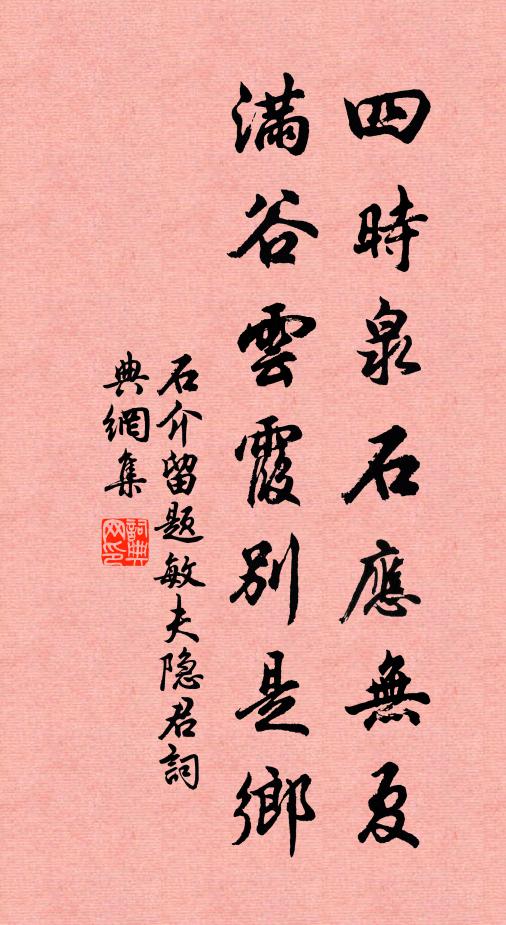 四時泉石應無夏
滿谷雲霞別是鄉
石介留題敏夫隐君詞
典網集
詞典網印